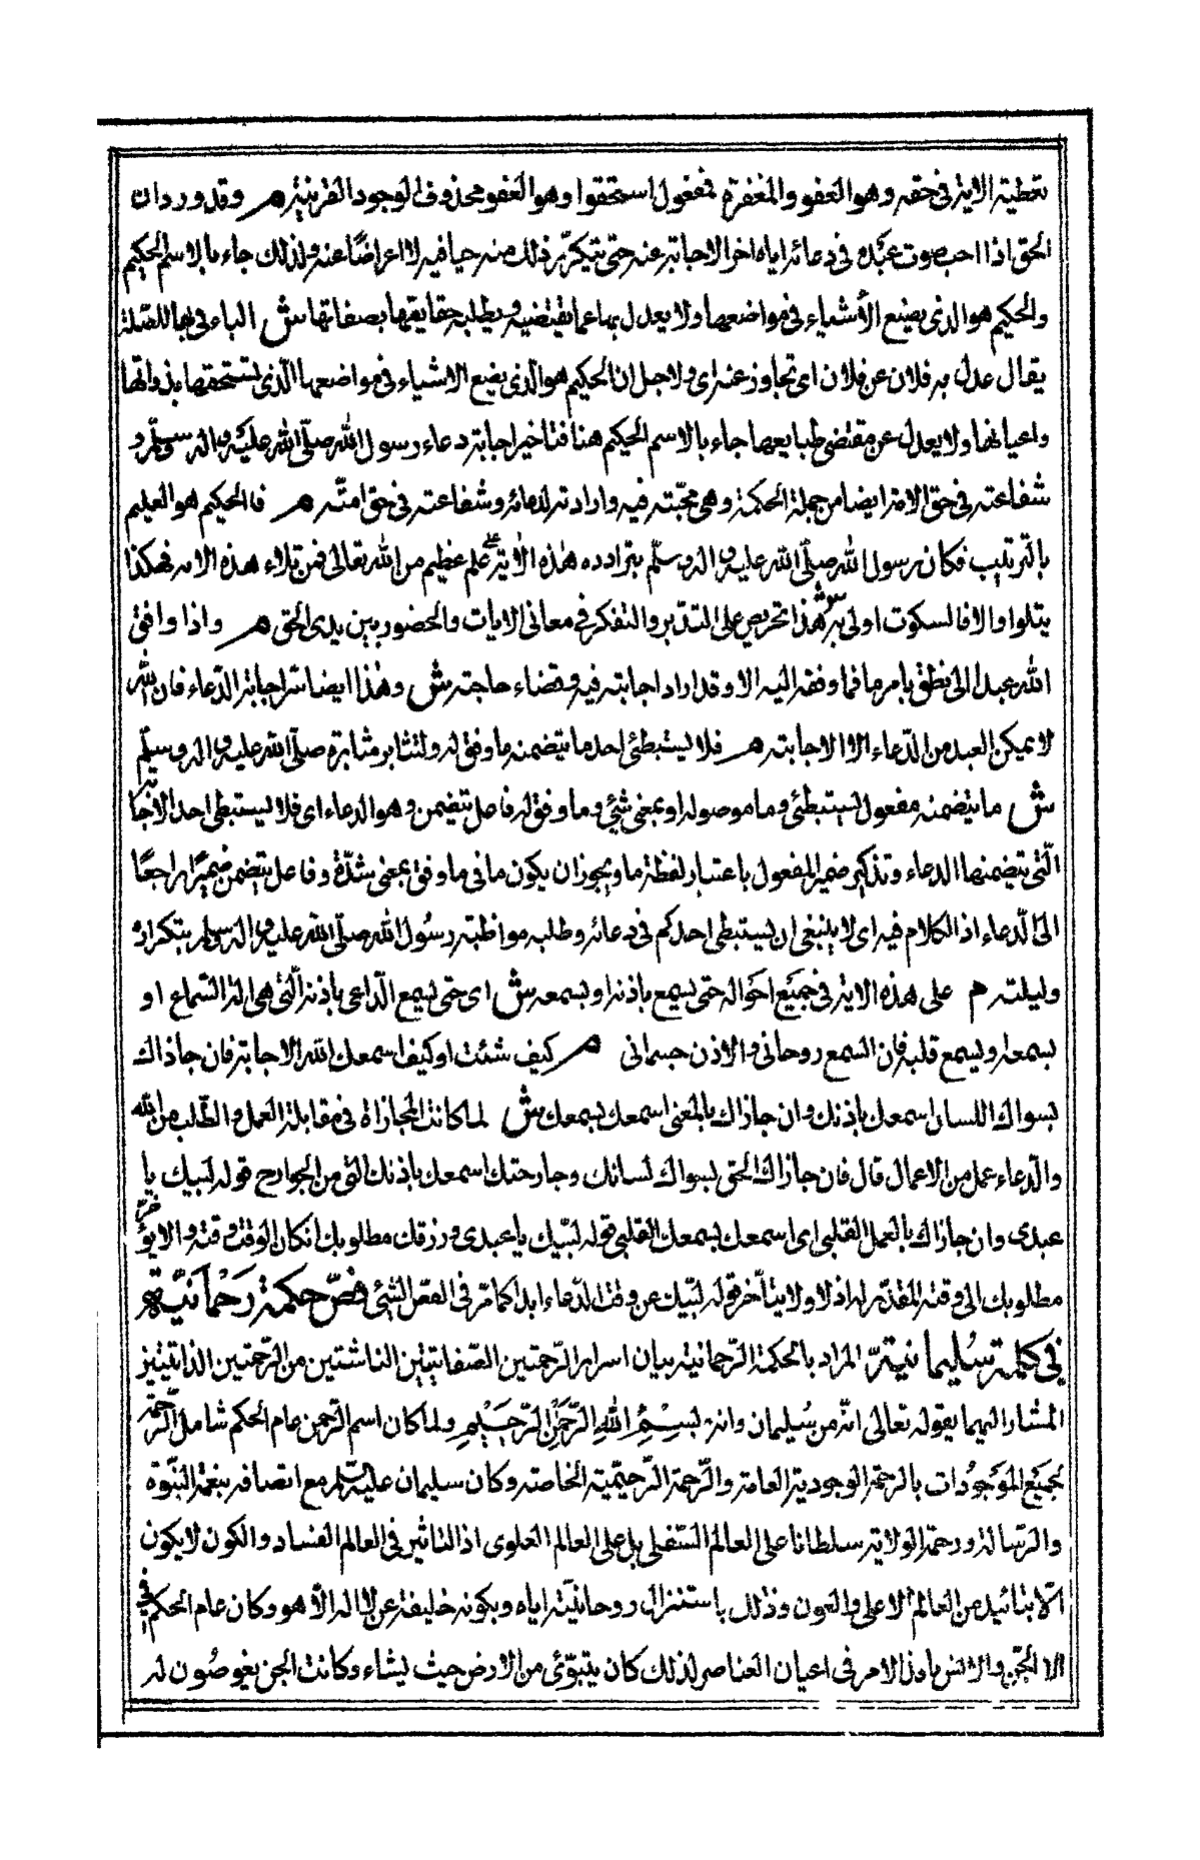 تعطيه الاية في حقه وهو العفو والمغفرة فمفعول استحقوا وهو العفو محذوف لوجود القرينة م وقد ورد ان
الحق اذا احب صوت عبده في دعائه اياه اخر الاجابة عنه حتى يتكرر ذلك منه حبا فيه لا اعراضا عنه ولذلك جاء بالاسم الحكيم
والحكيم هو الذى يضع الأشياء في مواضعها ولا يعدل بها عما يقتضيه ويطلبه حقايقها بصفاتها ش الباء في بها للصلة
يقال عدل به فلان عن فلان اى تجاوز عنه اى ولاجل ان الحكيم هو الذى يضع الاشياء في مواضعها الذى يستحقها بذواتها
واعيانها ولا يعدل عن مقتضى طبايعها جاء بالاسم الحكيم هنا فتاخير اجابة دعاء رسول الله صلى الله عليه واله وسلم و
شفاعته في حق الامة ايضا من جملة الحكمة وهى محبته فيه وارادته لدعائه وشفاعته في حق امته م فالحكيم هو العليم
بالترتيب فكان رسول الله صلى الله عليه واله وسلم بترادده هذه الأية على علم عظيم من الله تعالى فمن تلاء هذه الاية فهكذا
يتلوا والا فالسكوت اولى به ش هذا تحريص على التدبر والتفكر في معانى الايات والحضور بين يدى الحق م واذا وافق
الله عبدا الى نطق بامر ما فما وفقه اليه الا وقد اراد اجابته فيه وقضاء حاجته ش وهذا ايضا سر اجابة الدعاء فان الله
لا يمكن العبد من الدعاء الا للاجابة م فلا يستبطئ احد ما يتضمنه ما وفق له ولتثابر مثابرة صلى الله عليه واله وسلم
ش ما يتضمنه مفعول يستبطئ وما موصولة او بمعنى شئ وما وفق له فاعل يتضمن وهو الدعاء اى فلا يستبطئ احد الاجابة
التى يتضمنها الدعاء وتذكير ضمير المفعول باعتبار لفظة ما ويجوز ان يكون ما في ما وفق بمعنى شدة وفاعل يتضمن ضميرا راجعا
الى الدعاء اذ الكلام فيه اى لا ينبغى ان يستبطئ احدكم في دعائه وطلبه مواظبة رسول الله صلى الله عليه واله وسلم بتكراره
وليلته م على هذه الاية في جميع احواله حتى يسمع باذنه او بسمعه ش اى حتى يسمع الداعى باذنه التى هى الة السماع او
بسمعه وبسمع قلبه فان السمع روحانى والاذن جسمانى م كيف شئت او كيف اسمعك الله الاجابة فان جاذاك
بسواك اللسان اسمعك باذنك وان جازاك بالمعنى اسمعك بسمعك ش لما كانت المجازاة في مقابلة العمل والطلب من الله
والدعاء عمل من الاعمال قال فان جازاك الحق بسواك لسانك وجارحتك اسمعك باذنك التى من الجوارح قوله لبيك يا
عبدى وان جازاك بالعمل القلبى اى اسمعك بسمعك القلبى قوله لبيك يا عبدى ورزقك مطلوبك انكان الوقت وقته والا يؤخر
مطلوبك الى وقته المقدر له اذ لا ولا يتأخر قوله لبيك عن وقت الدعاء ابدا كما مر في الفص الشيئى فص حكمة رحمانية
في كلمة سليمانية المراد بالحكمة الرحمانية بيان اسرار الرحمتين الصفاتيتين الناشئتين من الرحمتين الذاتيتين
المشار اليهما بقوله تعالى انه من سليمان وانه بسم الله الرحمن الرحيم ولما كان اسم الرحمن عام الحكم شامل الرحمة
لجميع الموجودات بالرحمة الوجودية العامة والرحمة الرحيمية الخاصة وكان سليمان عليه السلام مع اتصافه بنعمة النبوة
والرسالة ورحمة الولاية سلطانا على العالم السفلى بل على العالم العلوى اذ التاثير في العالم الفساد والكون لا يكون
الا بتائيد من العالم الاعلى والعون وذلك باستنزال روحانيته اياه وبكونه خليفة عن لا اله الا هو وكان عام الحكم في
الا الجن والانس نافذ الامر في اعيان العناصر لذلك كان يتبوئ من الارض حيث يشاء وكانت الجن يغوصون له